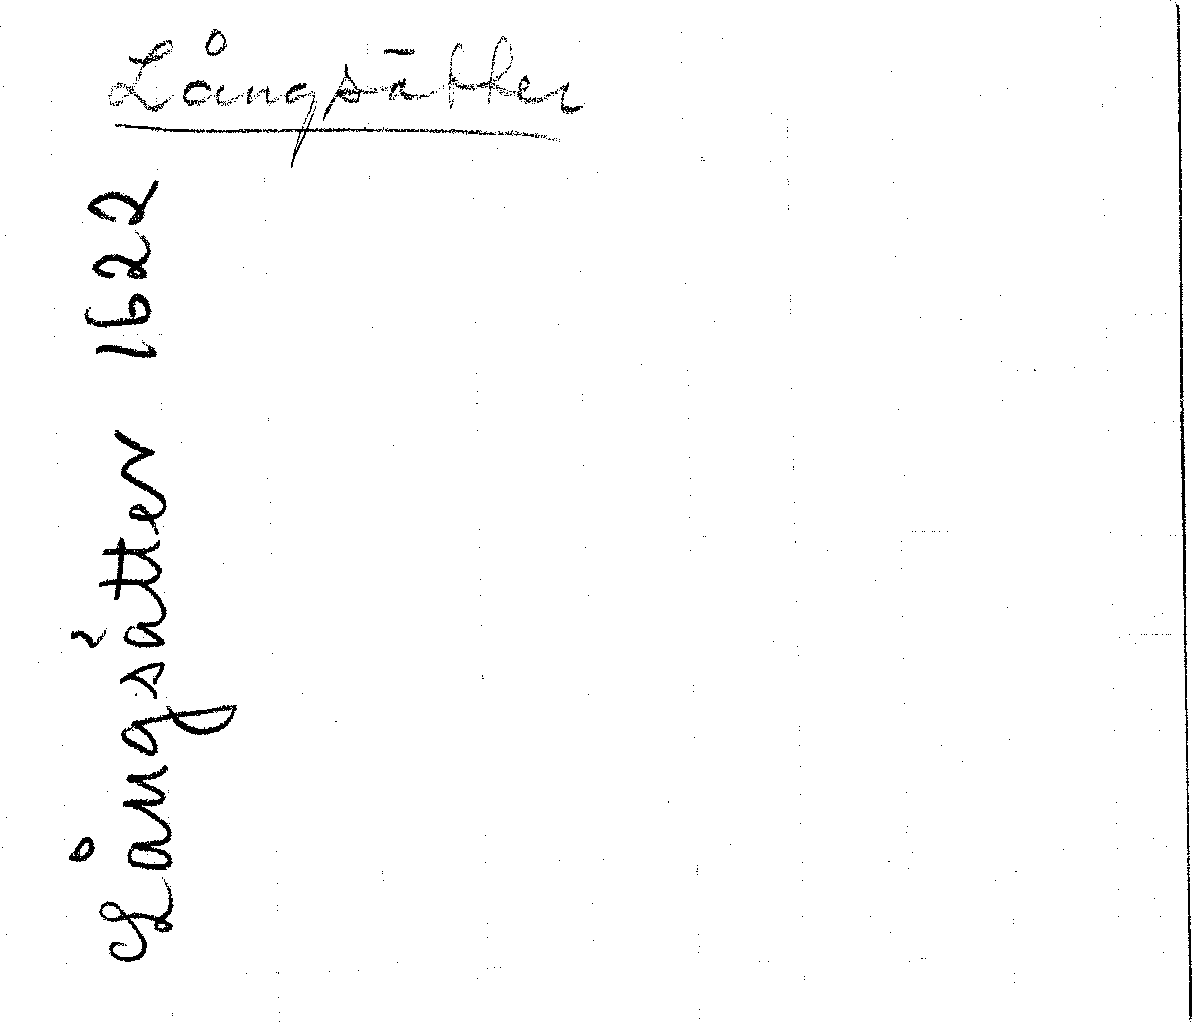 Långsätter
Långsätter 1622